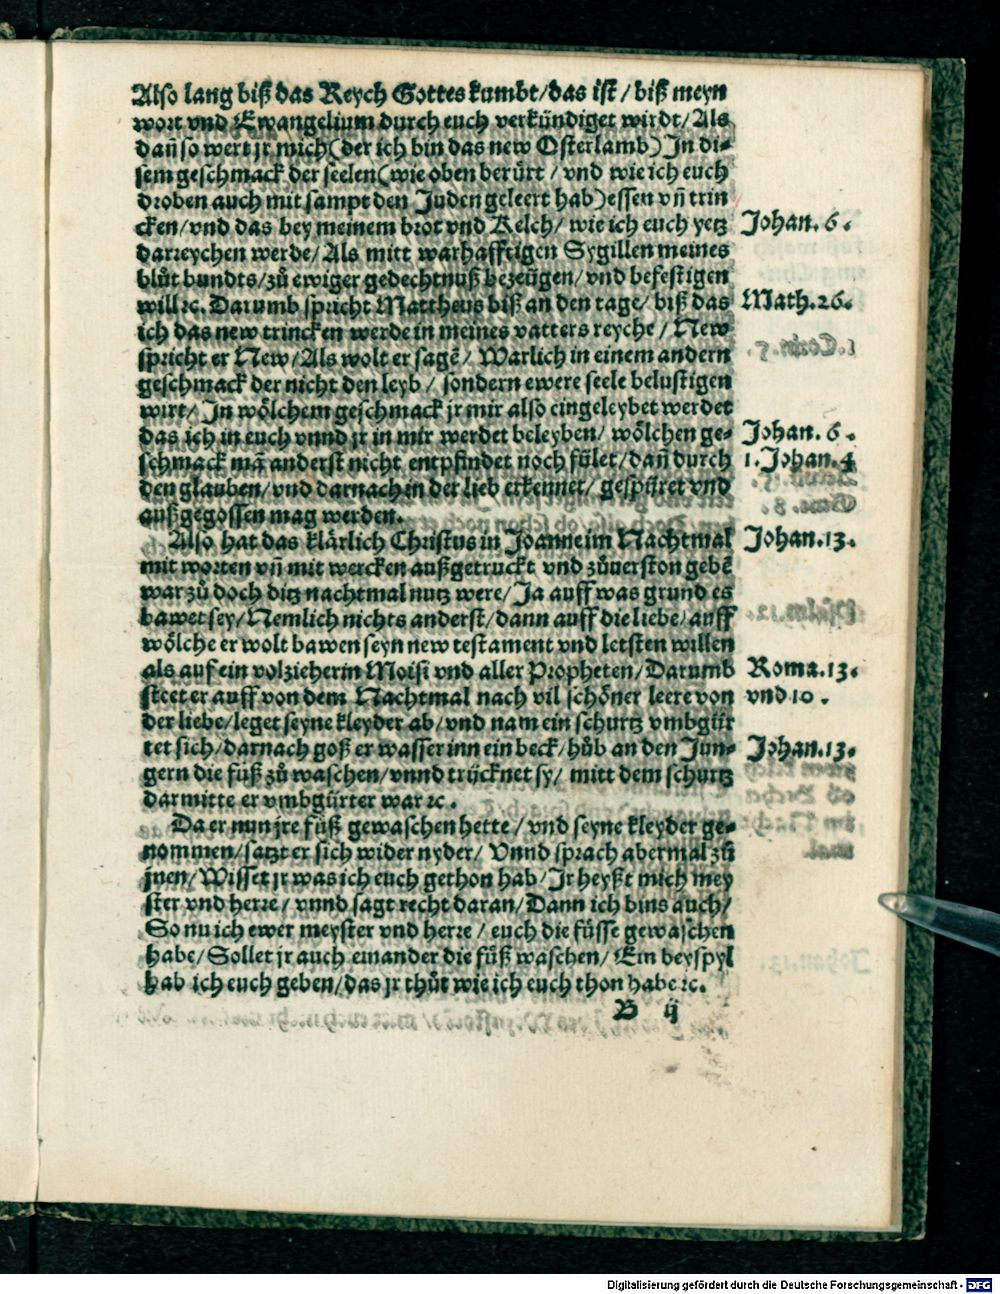 Also lang biß das Reych Gottes kumbt/das ist/biß meyn
wort vnd Ewangelium durch euch verkündiget wirdt/Als
dañ so wert jr mich(der ich bin das new Osterlamb)In di-
sem geschmack der seelen(wie oben berürt/vnd wie ich euch
droben auch mit sampt den Juden geleert hab)essen vñ trin
cken/vnd das bey meinem brot vnd Kelch/wie ich euch yetz
Johan. 6.
darreychen werde/Als mitt warhafftigen Sygillen meines
blůt bundts/zů ewiger gedechtnuß bezeügen/vnd befestigen
will ꝛc. Darumb spricht Mattheus biß an den tage/biß das
Math. 26.
ich das new trincken werde in meines vatters reyche/New
spricht er New/Als wolt er sagẽ/Warlich in einem andern
geschmack der nicht den leyb/sondern ewere seele belustigen
wirt/In wölchem geschmack jr mir also eingeleybet werdet
das ich in euch vnnd jr in mir werdet beleyben/wölchen ge-
Johan. 6.
schmack mã anderst nicht entpfindet noch fület/dañ durch
1. Johan. 4
den glauben/vnd darnach in der lieb erkennet/gespüret vnd
außgegossen mag werden.
Also hat das klärlich Christus in Joanne im Nachtmal
Johan. 13.
mit worten vñ mit wercken außgetruckt vnd zůuerston gebẽ
war zů doch ditz nachtmal nutz were/Ja auff was grund es
bawet sey/Nemlich nichts anderst/dann auff die liebe/auff
wölche er wolt bawen seyn new testament vnd letsten willen
als auf ein volzieherin Moisi vnd aller Propheten/Darumb
Roma. 13.
steet er auff von dem Nachtmal nach vil schöner leere von
vnd 10.
der liebe/leget seyne kleyder ab/vnd nam ein schurtz vmbgür
tet sich/darnach goß er wasser inn ein beck/hůb an den Jun-
Johan. 13.
gern die füß zů waschen/vnnd trücknet sy/mitt dem schurtz
darmitte er vmbgürter war ꝛc.
Da er nun jre füß gewaschen hette/vnd seyne kleyder ge-
nommen/satzt er sich wider nyder/Vnnd sprach abermal zů
jnen/Wisset jr was ich euch gethon hab/Jr heyßt mich mey
ster vnd herre/vnnd sagt recht daran/Dann ich bins auch/
So nu ich ewer meyster vnd herre/euch die füsse gewaschen
habe/Sollet jr auch einander die füß waschen/Ein beyspyl
hab ich euch geben/das jr thůt wie ich euch thon habe ꝛc.
B ij
Digitalisierung gefördert durch die Deutsche Forschungsgemeinschaft - DFG